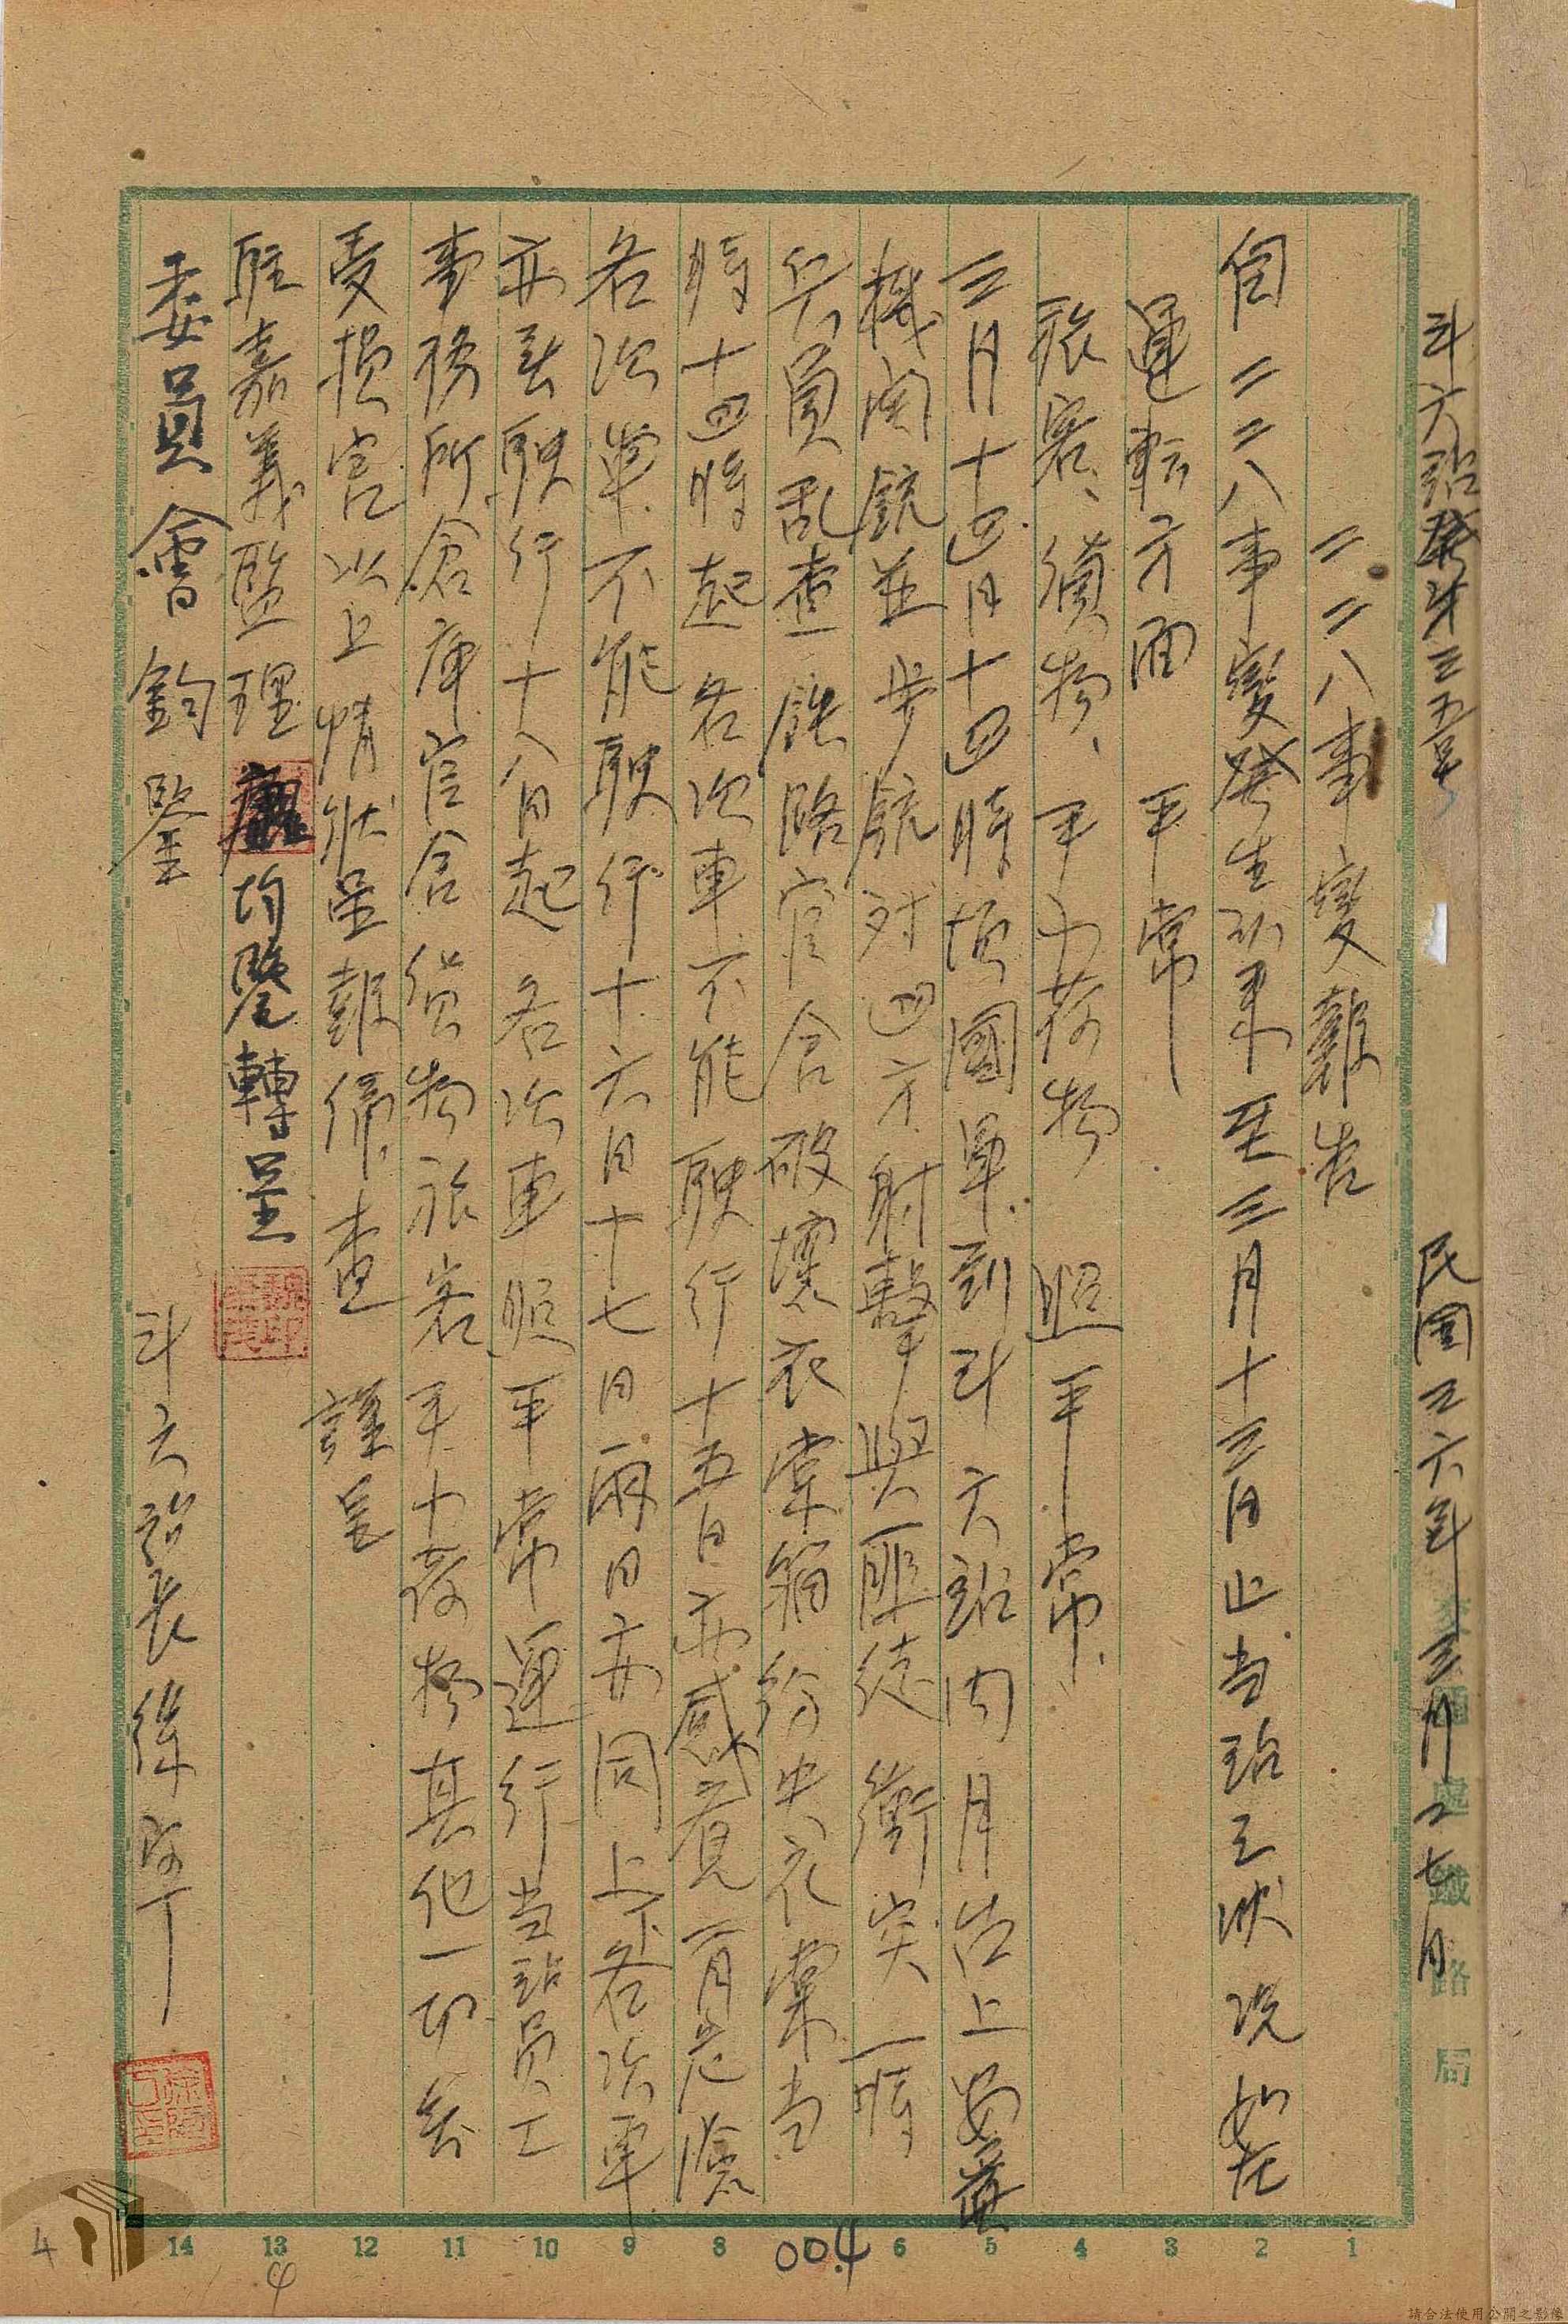 斗六站發斗三五号 民國三六年三月二七日
二二八事變報告
自二二八事變發生以來至三月十三日止当站之狀況如左
運転方面 平常
旅客、貨物、手小荷物 照平常
三月十四日十四時頃國軍到斗六站内月台上安置
機関銃並步銃対四方射擊與匪徒衝突一時
兵員乱查鉄路官舍破壞衣棠箱紛失衣棠当
時十四時起各次車不能駛行十五日亦感覚有危險
各次車不能駛行十六日十七日兩日亦同上下各次車
亦無駛行十八日起各次車照平常運行当站員工
事務所倉庫官舍貨物旅客手小荷物其他一切無
受損害以上情狀呈報俻查 謹呈
駐嘉義監理 均鑒轉呈
委員會鈞鑒 斗六站長徐阿丁
交通處鐵路局
1 2 3 4 5 6 8 9 10 11 12 13 14
004
4
4
請合法使用公開之影像